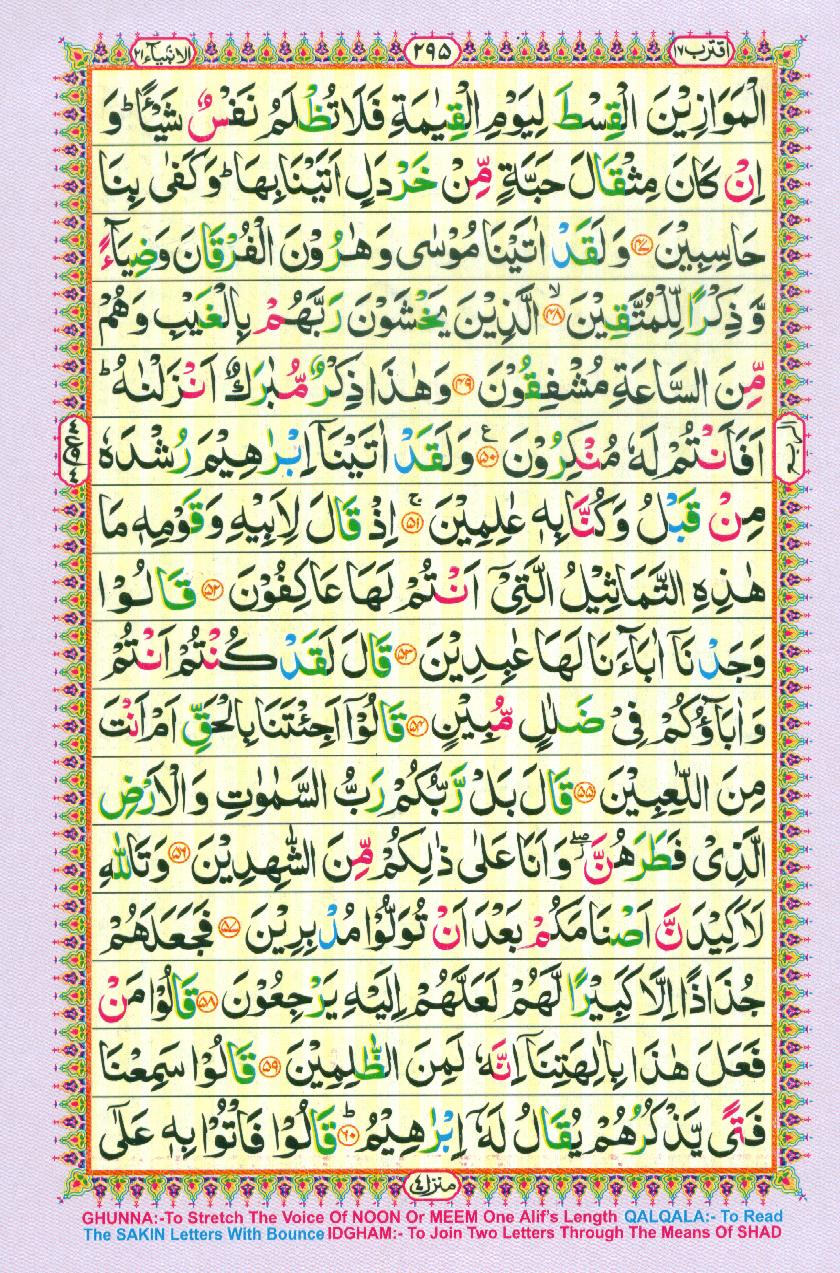 اقترب ١٧ ٢٩٥ الانبیآء ٢١
الۡمَوَازِیۡنَ الۡقِسۡطَ لِیَوۡمِ الۡقِیٰمَۃِ فَلَا تُظۡلَمُ نَفۡسٌ شَیۡـًٔا ؕ وَ
اِنۡ کَانَ مِثۡقَالَ حَبَّۃٍ مِّنۡ خَرۡدَلٍ اَتَیۡنَا بِہَا ؕ وَکَفٰی بِنَا
حَاسِبِیۡنَ ﴿۴۷﴾ وَ لَقَدۡ اٰتَیۡنَا مُوۡسٰی وَ ہٰرُوۡنَ الۡفُرۡقَانَ وَضِیَآءً
وَّ ذِکۡرًا لِّلۡمُتَّقِیۡنَ ﴿ۙ۴۸﴾ الَّذِیۡنَ یَخۡشَوۡنَ رَبَّہُمۡ بِالۡغَیۡبِ وَہُمۡ
مِّنَ السَّاعَۃِ مُشۡفِقُوۡنَ ﴿۴۹﴾ وَہٰذَا ذِکۡرٌ مُّبٰرَکٌ اَنۡزَلۡنٰہُ ؕ
اَفَاَنۡتُمۡ لَہٗ مُنۡکِرُوۡنَ ﴿٪۵۰﴾ وَلَقَدۡ اٰتَیۡنَاۤ اِبۡرٰہِیۡمَ رُشۡدَہٗ
مِنۡ قَبۡلُ وَکُنَّا بِہٖ عٰلِمِیۡنَ ﴿ۚ۵۱﴾ اِذۡ قَالَ لِاَبِیۡہِ وَقَوۡمِہٖ مَا
ہٰذِہِ التَّمَاثِیۡلُ الَّتِیۡۤ اَنۡتُمۡ لَہَا عَاکِفُوۡنَ ﴿۵۲﴾ قَالُوۡا
وَجَدۡنَاۤ اٰبَآءَنَا لَہَا عٰبِدِیۡنَ ﴿۵۳﴾ قَالَ لَقَدۡ کُنۡتُمۡ اَنۡتُمۡ
وَ اٰبَآؤُکُمۡ فِیۡ ضَلٰلٍ مُّبِیۡنٍ ﴿۵۴﴾ قَالُوۡۤا اَجِئۡتَنَا بِالۡحَقِّ اَمۡ اَنۡتَ
مِنَ اللّٰعِبِیۡنَ ﴿۵۵﴾ قَالَ بَلۡ رَّبُّکُمۡ رَبُّ السَّمٰوٰتِ وَ الۡاَرۡضِ
الَّذِیۡ فَطَرَہُنَّ ۫ۖ وَاَنَا عَلٰی ذٰلِکُمۡ مِّنَ الشّٰہِدِیۡنَ ﴿۵۶﴾ وَتَاللّٰہِ
لَاَکِیۡدَنَّ اَصۡنَامَکُمۡ بَعۡدَ اَنۡ تُوَلُّوۡا مُدۡبِرِیۡنَ ﴿۵۷﴾ فَجَعَلَہُمۡ
جُذٰذًا اِلَّا کَبِیۡرًا لَّہُمۡ لَعَلَّہُمۡ اِلَیۡہِ یَرۡجِعُوۡنَ ﴿۵۸﴾ قَالُوۡا مَنۡ
فَعَلَ ہٰذَا بِاٰلِہَتِنَاۤ اِنَّہٗ لَمِنَ الظّٰلِمِیۡنَ ﴿۵۹﴾ قَالُوۡا سَمِعۡنَا
فَتًی یَّذۡکُرُہُمۡ یُقَالُ لَہٗۤ اِبۡرٰہِیۡمُ ﴿ؕ۶۰﴾ قَالُوۡا فَاۡتُوۡا بِہٖ عَلٰۤی
منزل ٤
GHUNNA:-To Stretch The Voice Of NOON Or MEEM One Alif's Length QALQALA:- To Read
The SAKIN Letters With Bounce IDGHAM:- To Join Two Letters Through The Means Of SHAD